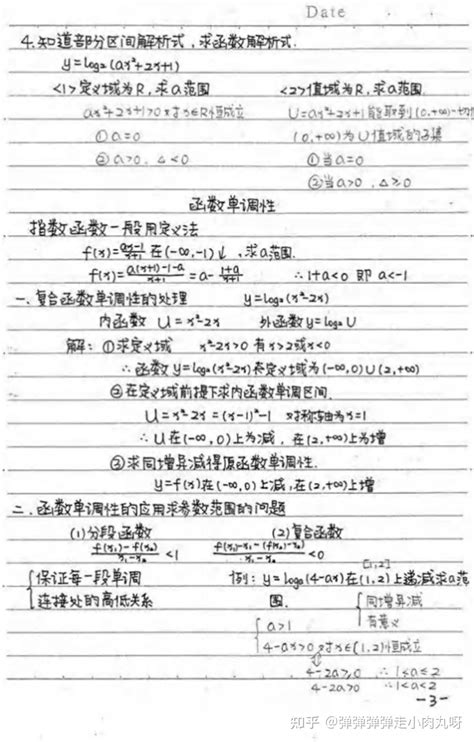 Date
4.知道部分区间解析式,求函数解析式.
y=log₂(ax²+2x+1)
<1>定义域为R,求a范围 <2>值域为R,求a范围.
ax²+2x+1>0对x∈R恒成立 U=ax²+2x+1能取到(0,+∞)一切
①a=0 (0,+∞)为U值域的子集
②a>0.△<0 ①当a=0
②当a>0.△≥0
函数单调性
指数函数一般用定义法
f(x)=(ax-1)/(x+1)在(-∞,-1)↓,求a范围.
f(x)=(a(x+1)-1-a)/(x+1)=a-(1+a)/(x+1) ∴1+a<0 即 a<-1
一.复合函数单调性的处理 y=log₂(x²-2x)
内函数 U=x²-2x 外函数y=log₂U
解:①求定义域 x²-2x>0 有x>2或x<0
∴函数y=log₂(x²-2x)定义域为(-∞,0)∪(2,+∞)
②在定义域前提下求内函数单调区间.
U=x²-2x=(x-1)²-1 对称轴为x=1
∴U在(-∞,0)上为减,在(2,+∞)上为增
③求同增异减得原函数单调性.
y=f(x)在(-∞,0)上减,在(2,+∞)上增
二.函数单调性的应用求参数范围的问题
(1)分段函数 (2)复合函数
<1 <0
[1,2]
保证每一段单调 例:y=logₐ(4-ax)在(1,2)上递减求a范
连接处的高低关系 围. 同增异减
有意义
a>1
4-ax>0对x∈(1,2)恒成立
4-2a≥0 ∴1<a≤2
4-2a>0 ∴1<a<2
-3-
知乎 @弹弹弹弹走小肉丸呀